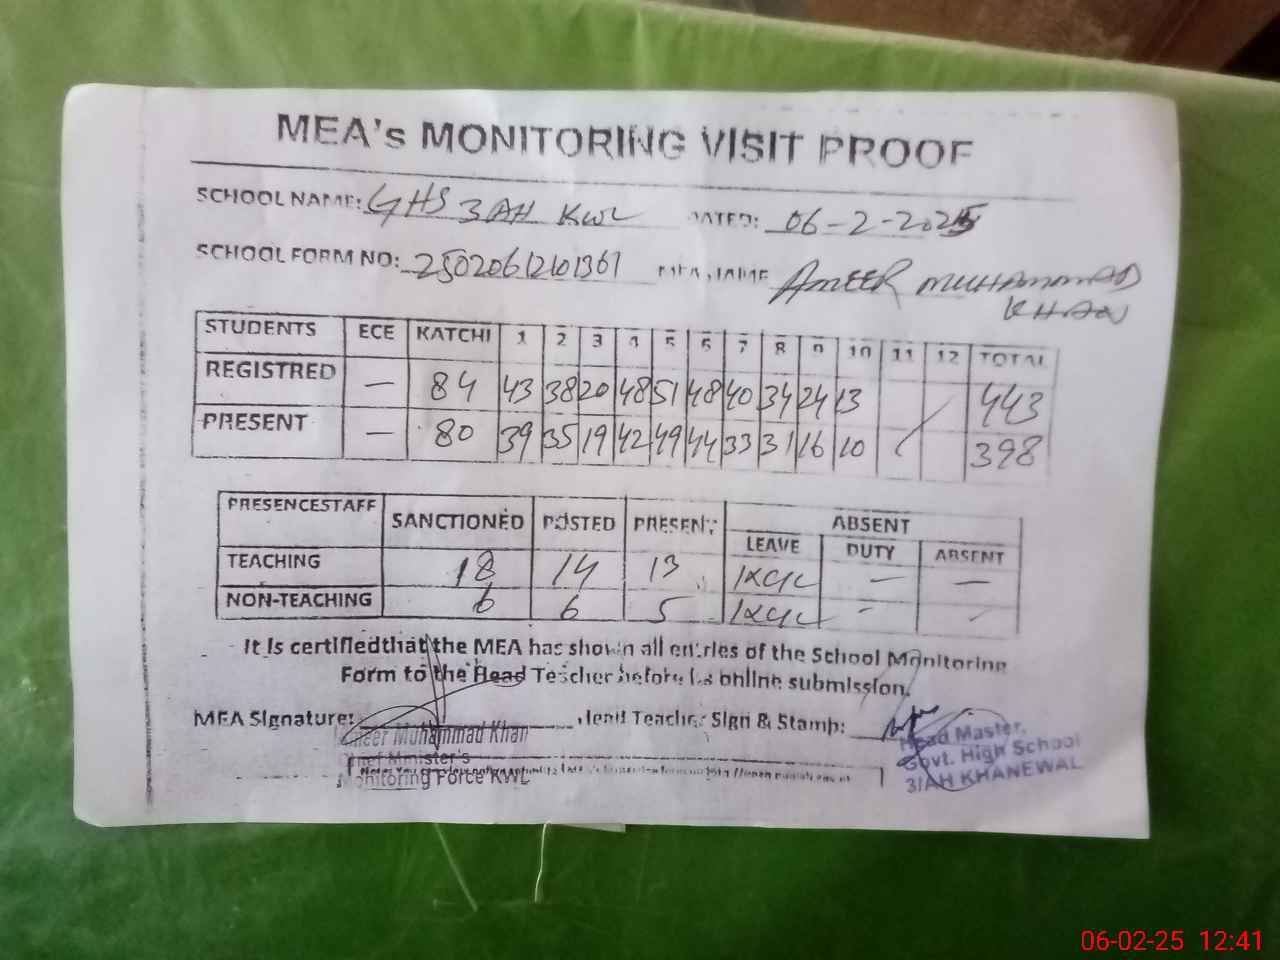 MEA's MONITORING VISIT PROOF
SCHOOL NAME: GHS 3AH KWL DATED: 06-2-2025
SCHOOL FORM NO: MEA NAME AMEER MUHAMMAD
KHAN
STUDENTS ECE KATCHI 1 2 3 4 5 6 7 8 9 10 11 12 TOTAL
REGISTRED — 84 43 38 20 48 51 48 40 34 24 13 443
PRESENT — 80 39 35 19 42 49 44 33 31 16 10 398
PRESENCESTAFF SANCTIONED POSTED PRESENT ABSENT
LEAVE DUTY ABSENT
TEACHING 18 14 13 1xCL — —
NON-TEACHING 6 6 5 1xCL - -
It is certifiedthat the MEA has shown all entries of the School Monitoring
Form to the Head Teacher before its online submission.
MEA Signature: Head Teacher Sign & Stamp:
Ameer Muhammad Khan
Chief Minister's
Monitoring Force KWL
Head Master,
Govt. High School
3/AH KHANEWAL
06-02-25 12:41